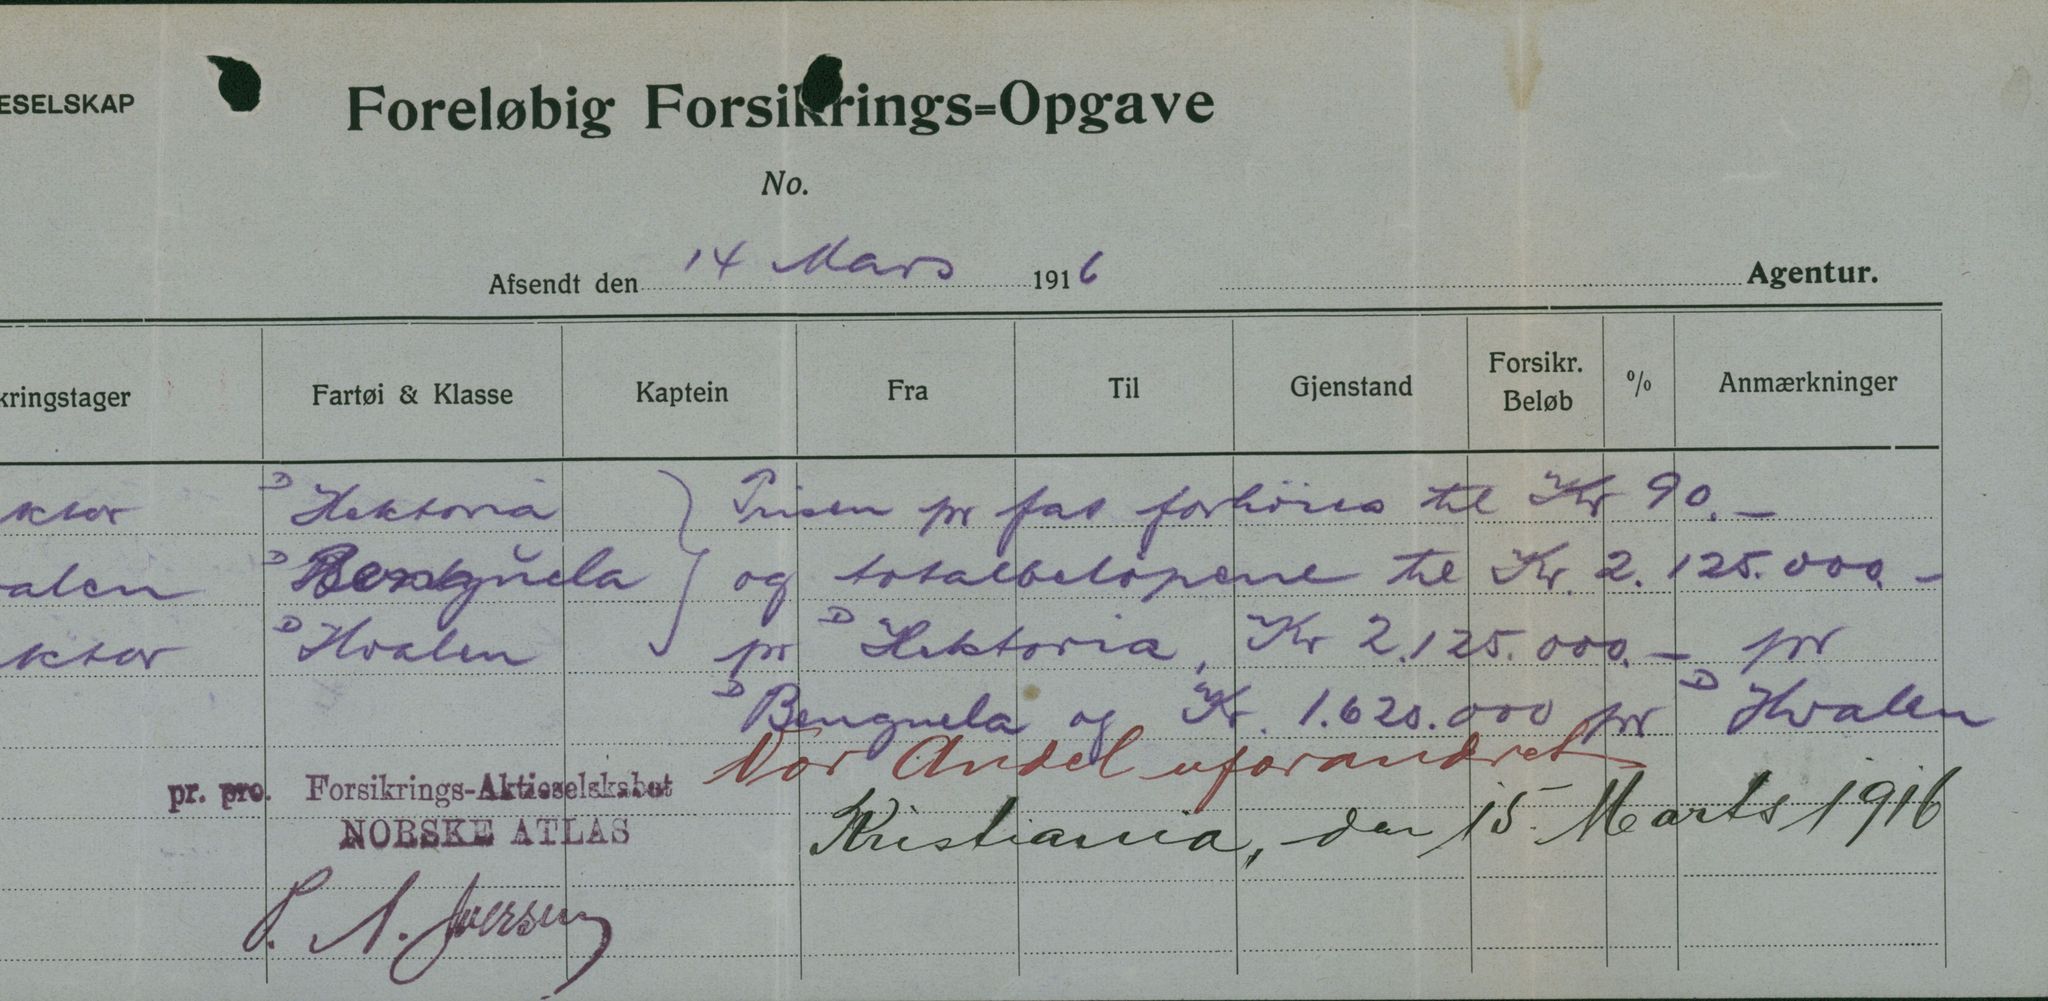 ESELSKAP
Foreløbig Forsikrings=Opgave
No.
Afsendt den 14 Mars 1916 Agentur.
kringstager Fartøi & Klasse Kaptein Fra Til Gjenstand Forsikr. Beløb % Anmærkninger
ktor D Hektoria } Prisen pr fat forhöies til Kr 90.-
valen D Benguela og totalbelöpene til Kr. 2.125.000.-
ktor D Hvalen pr D Hektoria, Kr 2.125.000.- pr
D Benguela og Kr. 1.620.000 pr D Hvalen
Vor Andel uforandret
pr. pro. Forsikrings-Aktieselskabet
NORSKE ATLAS
Kristiania, den 15. Marts 1916
P. A. Iversen